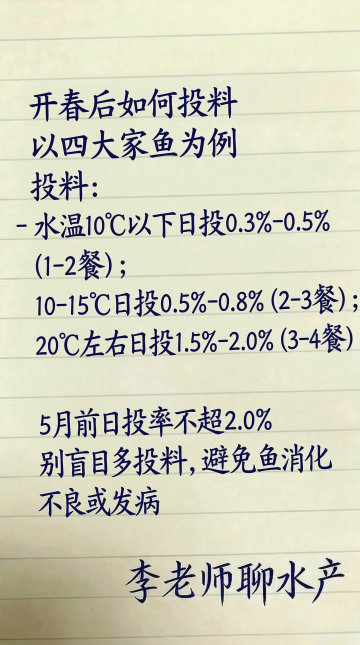 开春后如何投料
以四大家鱼为例
投料:
- 水温10℃以下日投0.3%-0.5%
(1-2餐);
10-15℃日投0.5%-0.8%(2-3餐);
20℃左右日投1.5%-2.0%(3-4餐)
5月前日投率不超2.0%
别盲目多投料,避免鱼消化
不良或发病
李老师聊水产